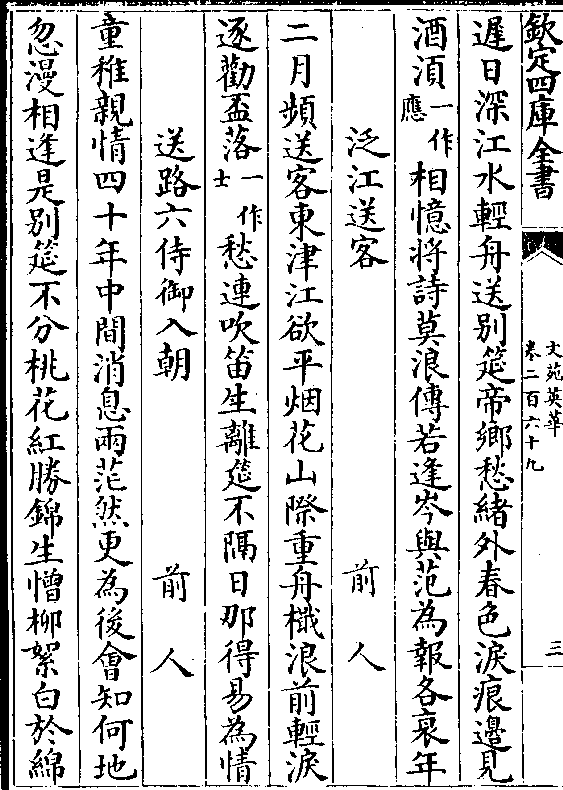 欽定四庫全書
文苑英華
卷二百六十九
三
遲日深江水輕舟送别筵帝鄉愁緒外春色淚痕邊見
酒湏一作應相憶將詩莫浪傳若逢岑與范為報各衰年
泛江送客 前人
二月頻送客東津江欲平烟花山際重舟檝浪前輕淚
逐勸盃落一作士愁連吹笛生離筵不隔日那得易為情
送路六侍御入朝 前人
童稚親情四十年中間消息兩茫然更為後㑹知何地
忽漫相逢是别筵不分桃花紅勝錦生憎柳絮白於綿